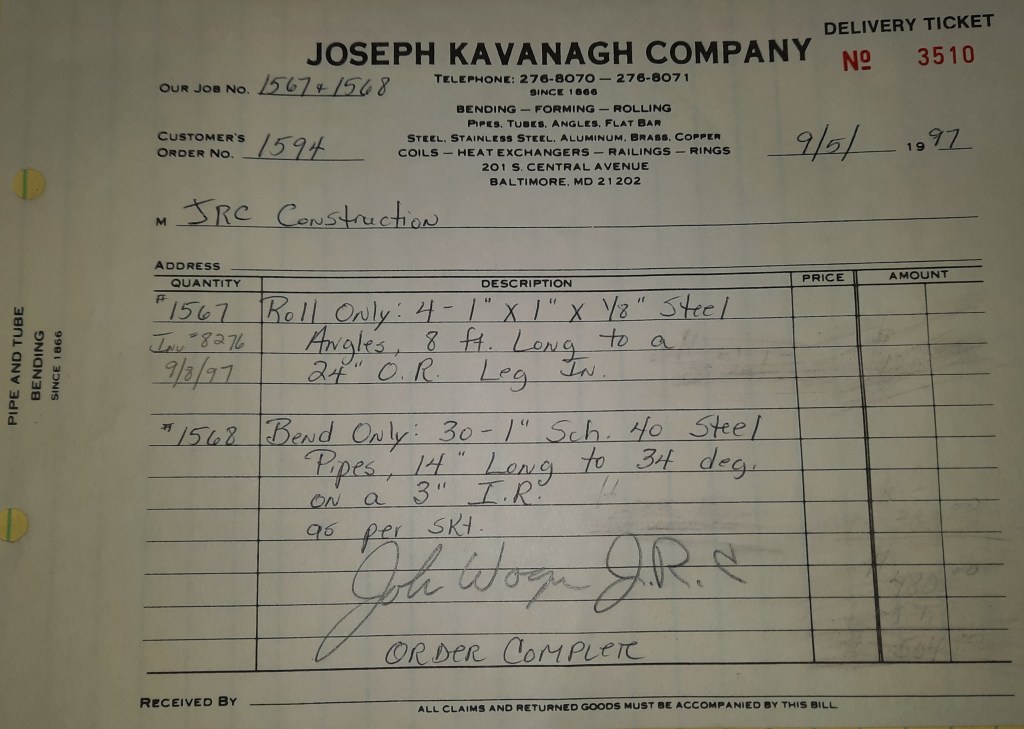 DELIVERY TICKET
JOSEPH KAVANAGH COMPANY
Nº 3510
TELEPHONE: 276-8070 — 276-8071
SINCE 1866
OUR JOB NO. 1567 + 1568
BENDING — FORMING — ROLLING
PIPES, TUBES, ANGLES, FLAT BAR
CUSTOMER'S
ORDER NO. 1594
STEEL, STAINLESS STEEL, ALUMINUM, BRASS, COPPER
COILS — HEAT EXCHANGERS — RAILINGS — RINGS
9/5/ 1997
201 S. CENTRAL AVENUE
BALTIMORE, MD 21202
M JRC Construction
ADDRESS
QUANTITY DESCRIPTION PRICE AMOUNT
#1567 Roll Only: 4 - 1" X 1" X 1/8" Steel
Inv #8276 Angles, 8 ft. Long to a
9/8/97 24" O.R. Leg In.
#1568 Bend Only: 30 - 1" Sch. 40 Steel
Pipes, 14" Long to 34 deg.
on a 3" I.R.
as per skt.
John J.R.C
ORDER COMPLETE
RECEIVED BY
ALL CLAIMS AND RETURNED GOODS MUST BE ACCOMPANIED BY THIS BILL
PIPE AND TUBE
BENDING
SINCE 1866